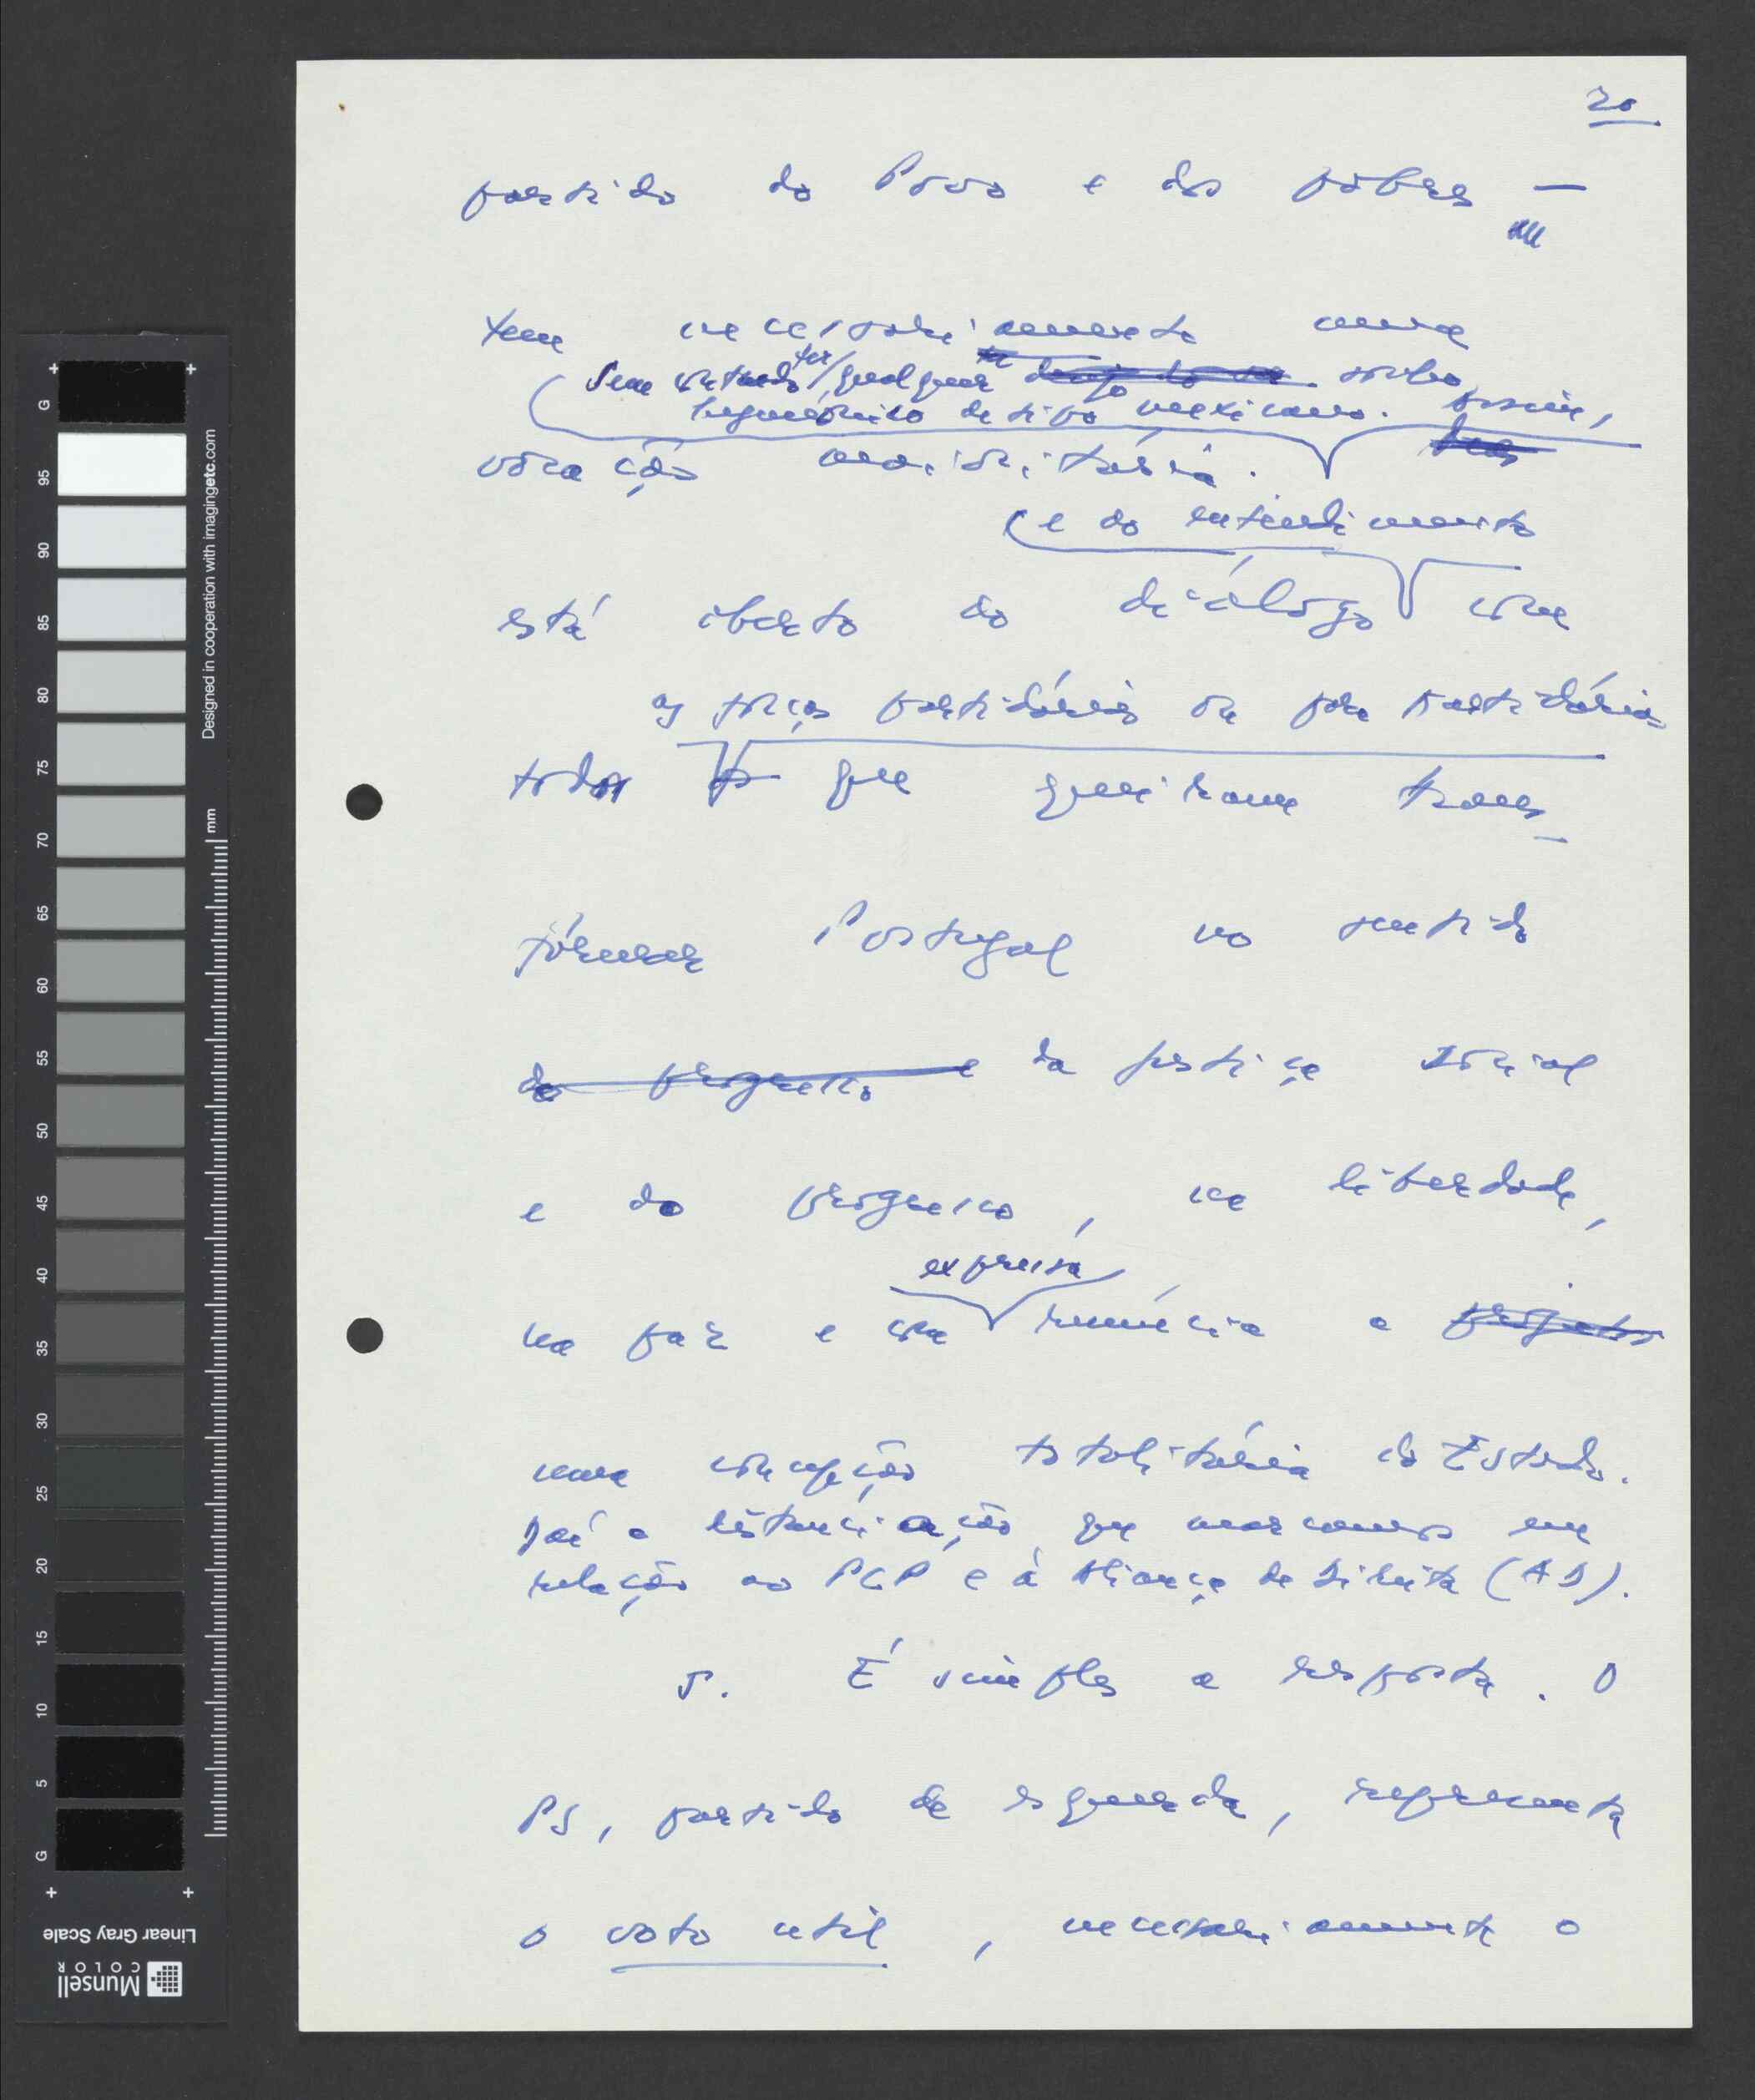 20
partido do Povo e dos pobres —
tem necessariamente uma
sem contudo ter qualquer desejo do sonho
hegemónico de tipo mexicano. Assim,
vocação maioritária.
e do entendimento
está aberto ao diálogo com
as forças partidárias ou para partidárias
todos que queiram trans-
formar Portugal no sentido
do progresso e da justiça social
e do progresso, na liberdade,
expressa
na paz e na renúncia a projectos
uma concepção totalitária do Estado.
Daí a distanciação que marcamos em
relação ao PCP e à Aliança de Direita (AD).
5. É simples a resposta. O
PS, partido de esquerda, representa
o voto util, necessariamente o
G 95 90 85 80 75 70 65 60 55 50 45 40 35 30 25 20 15 10 5 G
Designed in cooperation with imagingetc.com
mm
Munsell
COLOR
Linear Gray Scale